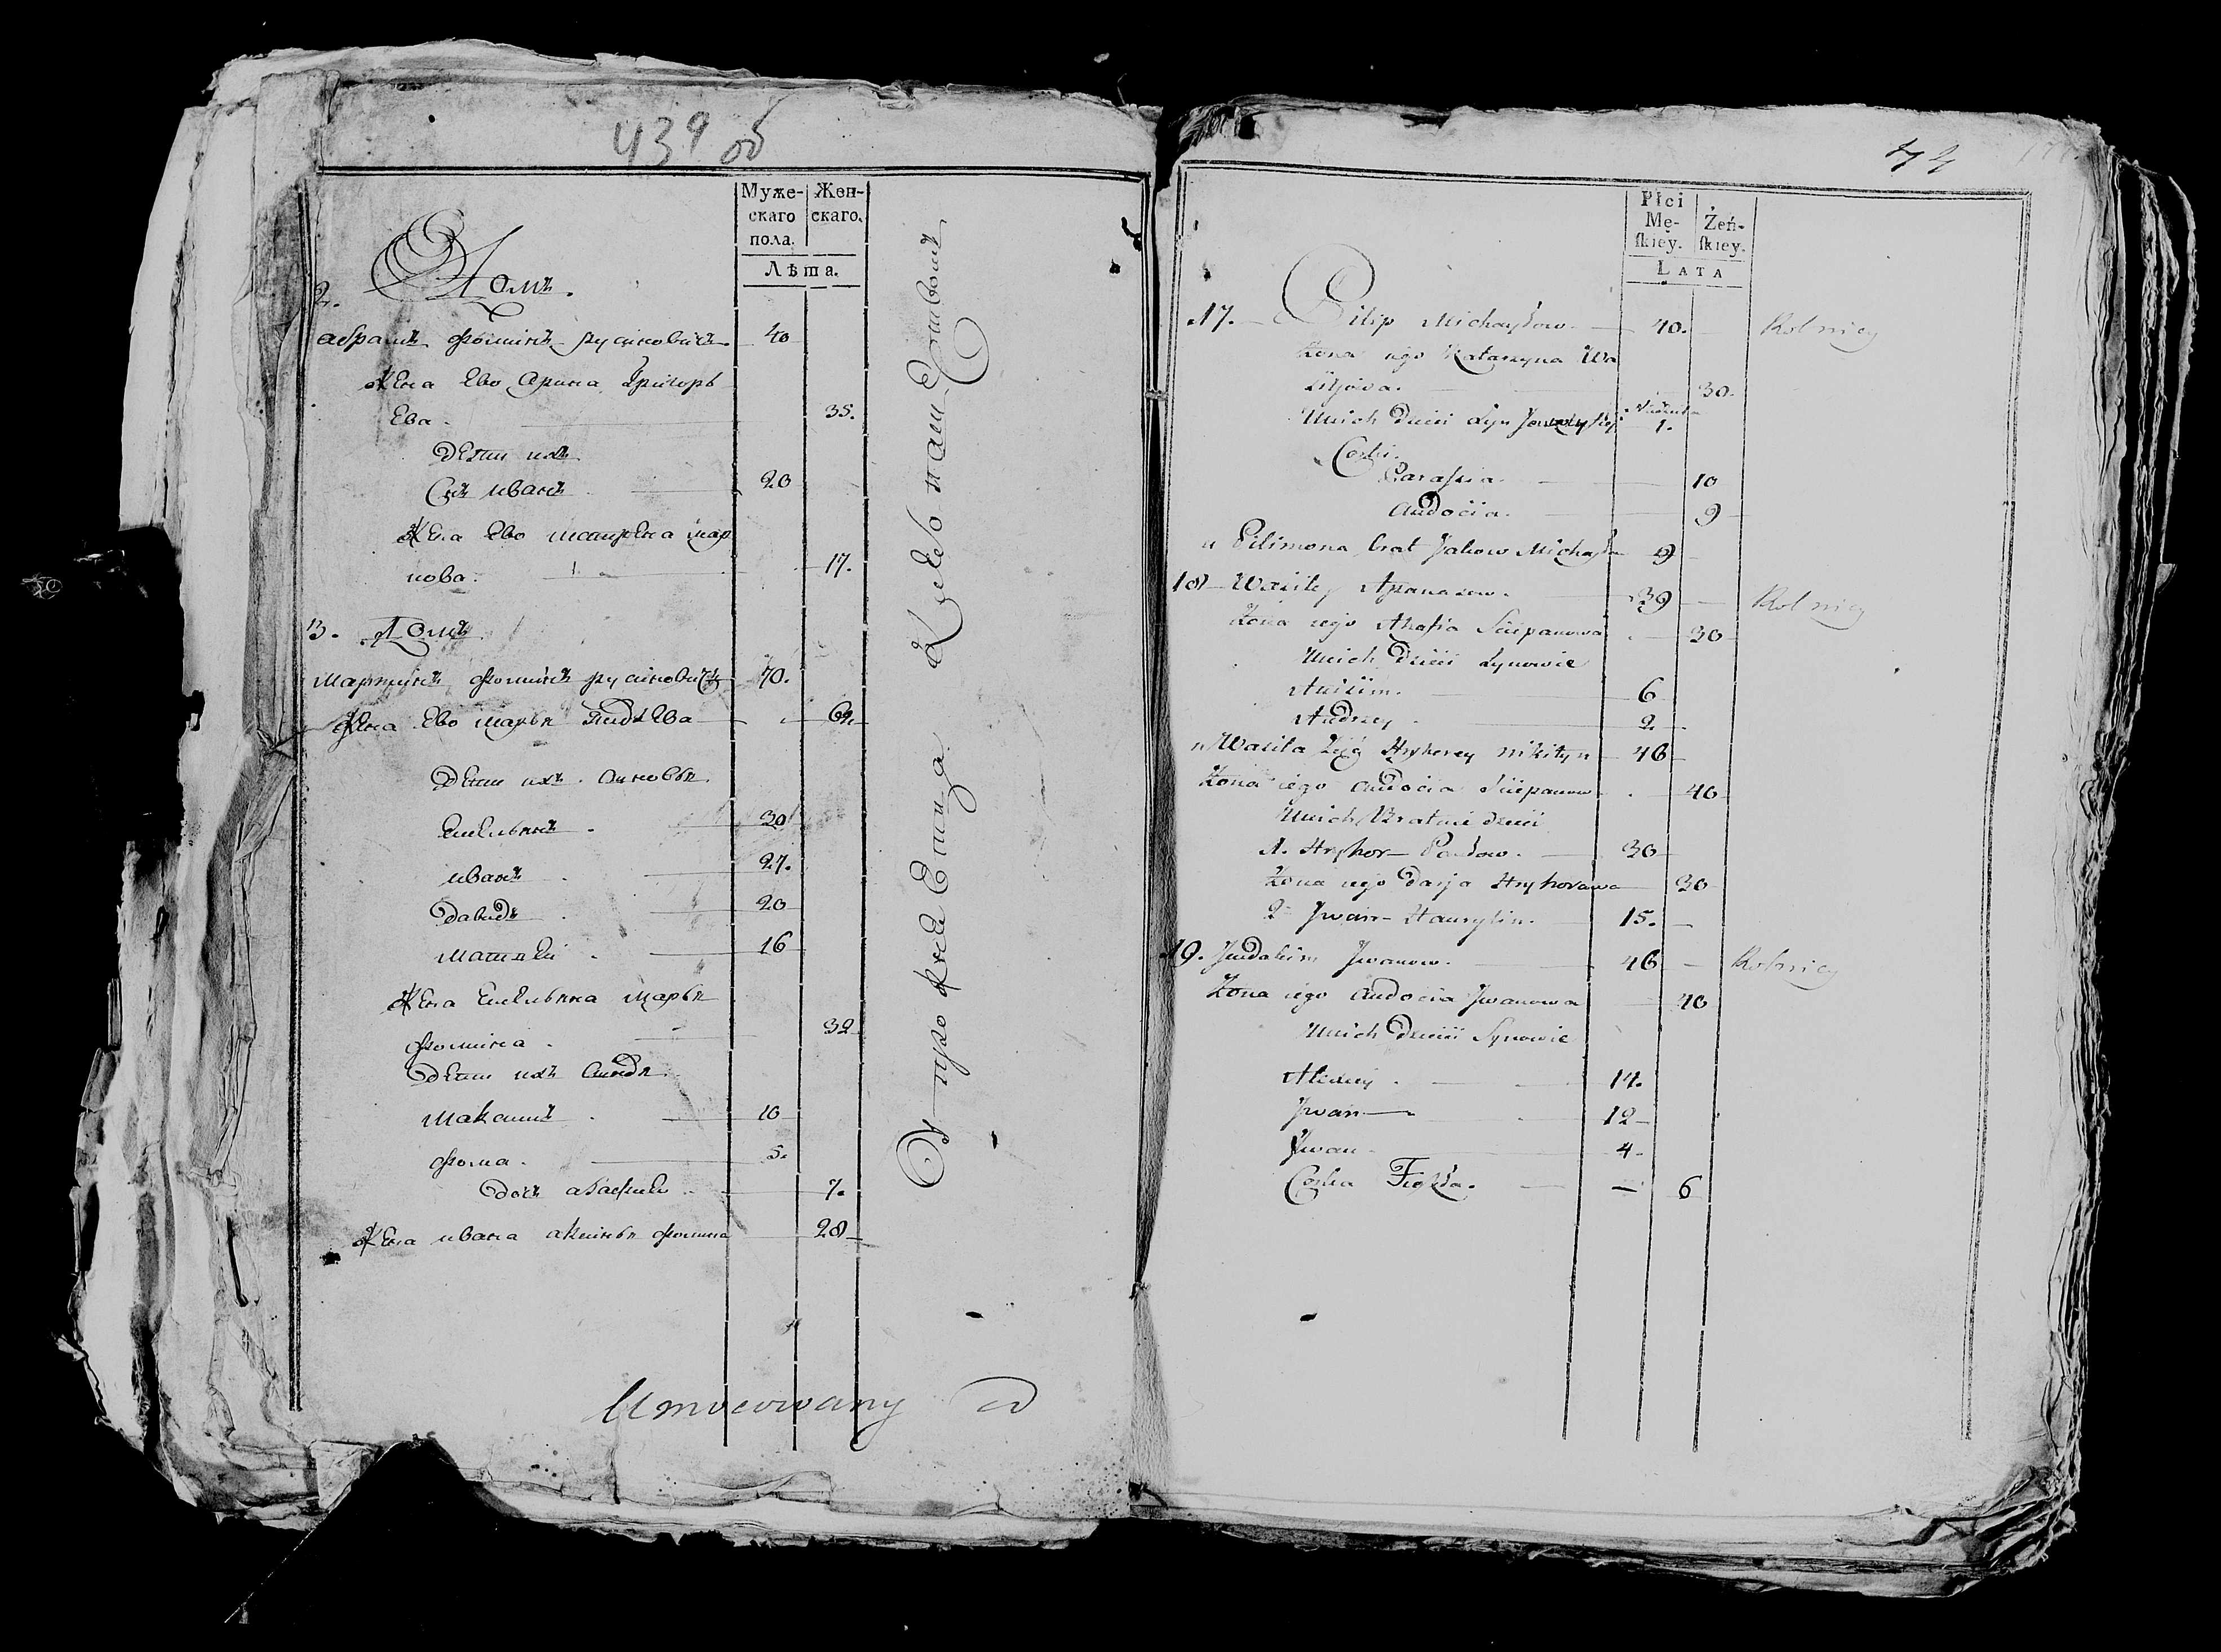 439 об
Муже-
скаго
пола.
Жен-
скаго.
Лѣта.
2. Домъ.
абрамъ фоминъ русиновичъ 40
жена Ево Орина Григорь
Ева. 35.
Дети ихъ
Снъ иванъ 20
жена Ево мотрена мар
кова. 17.
3. Домъ.
мартинъ фоминъ русиновичъ 70.
жена Ево марья 62.
Дети ихъ сыновья
Емельянъ 30
иванъ 27.
Давидъ 20
матвей 16
Жена Емельяна марья
фомина. 32
Дети ихъ
макзимъ 10
фома. 5.
дочь 7.
жена ивана аксинья фомина 28
Umocowany
44
Płci
Mę-
ſkiey.
Żeń-
ſkiey.
LATA
17. Filip Michayłow 40. Rolnicy
Żona iego Katarzyna Wa
30
Unich Dzieci Syn 1.
Corki.
Parasia. 10
Audocia. 9
u Filimona brat Jakow Michayłow 9
18 Wasiley Apanasow. 39 Rolnicy
Żona iego Ahafia Sciepanowa 30
Unich Dzieci Synowie
Anisim. 6
Andrzey. 2
u Wasila Zięć Hryhorey nikityn 46
Żona iego Audocia Sciepanow 40
Unich Bratnie dzieci
1. Hryhor Pawłow. 30
Żona iego Darja Hryhorowa 30
2 Jwan Hawrylin. 15.
19. Jwdakim Jwanow. 46 Rolnicy
Żona iego Audocia Jwanowa 40
Unich Dzieci Synowie
Alexiey. 14.
Jwan 12
Jwan 4
Corka Fiokła. 6